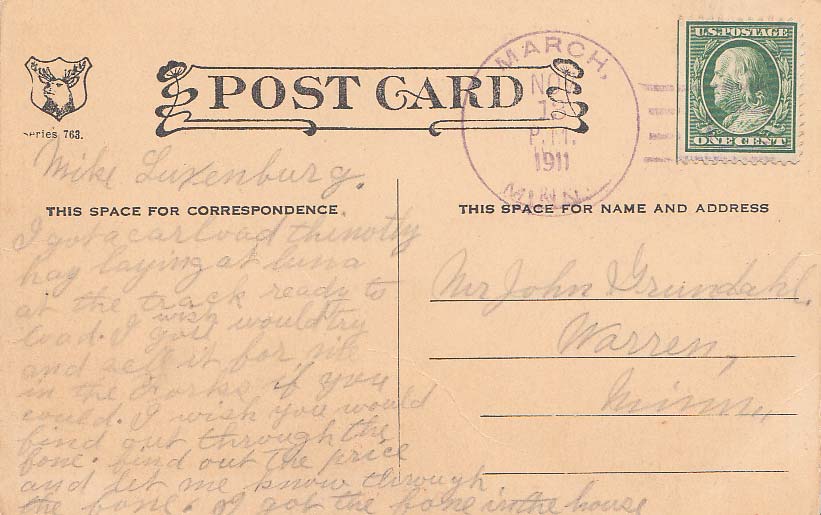 POST CARD
Series 763.
MARCH,
NOV
13
P.M.
1911
MINN.
U.S. POSTAGE
ONE CENT
Mike Luxenburg.
THIS SPACE FOR CORRESPONDENCE
THIS SPACE FOR NAME AND ADDRESS
I got a car load thimotly
hay laying at luna
at the track ready to
load. I wish you would try
and sell it for me
in the Forks if you
could. I wish you would
find out through the
fone. find out the price
and let me know through
the fone. I got the fone in the house
Mr John Grundahl.
Warren,
Minn.,